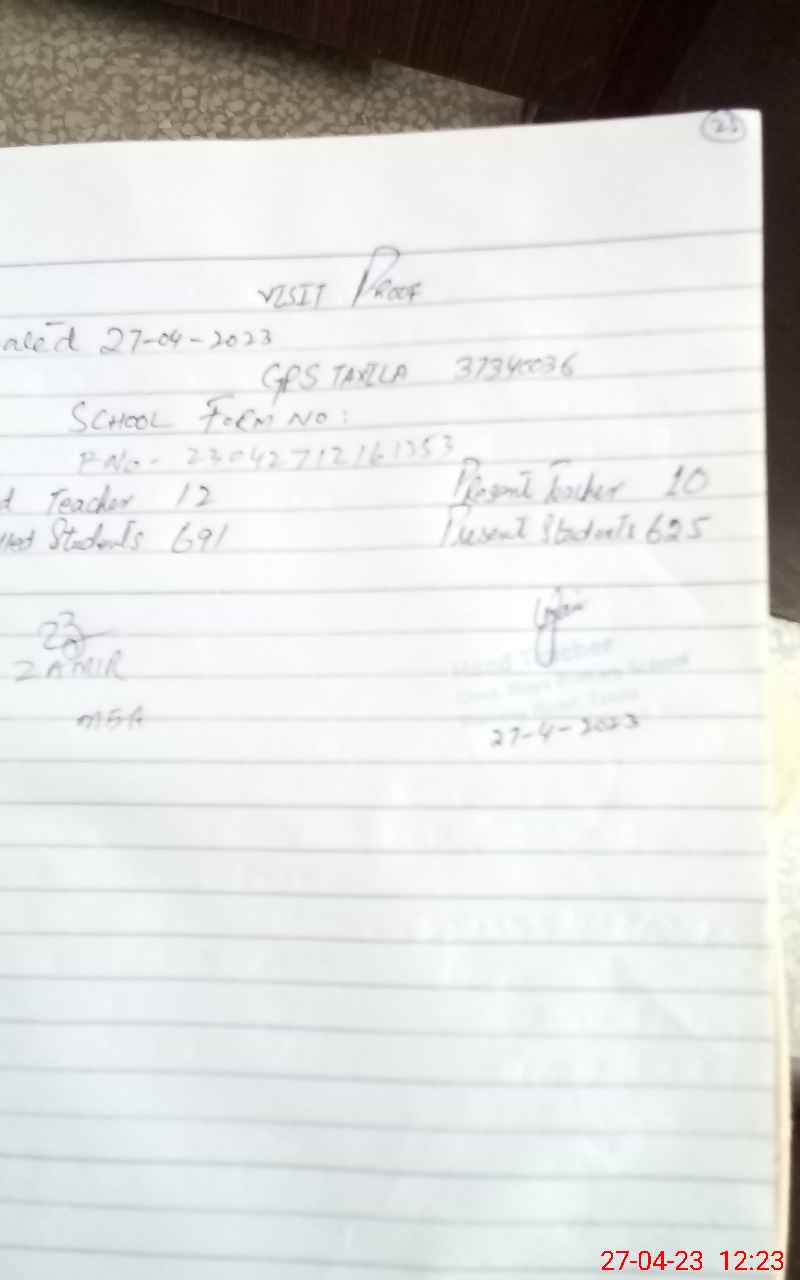 23
VISIT PROOF
ated 27-04-2023
GPS TAXILA 37340036
SCHOOL FORM NO:
F No- 23042712161353
d Teacher 12 Present Teacher 10
lled Students 691 Present Students 625
ZAMIR
Head Teacher
MEA
27-4-2023
27-04-23 12:23